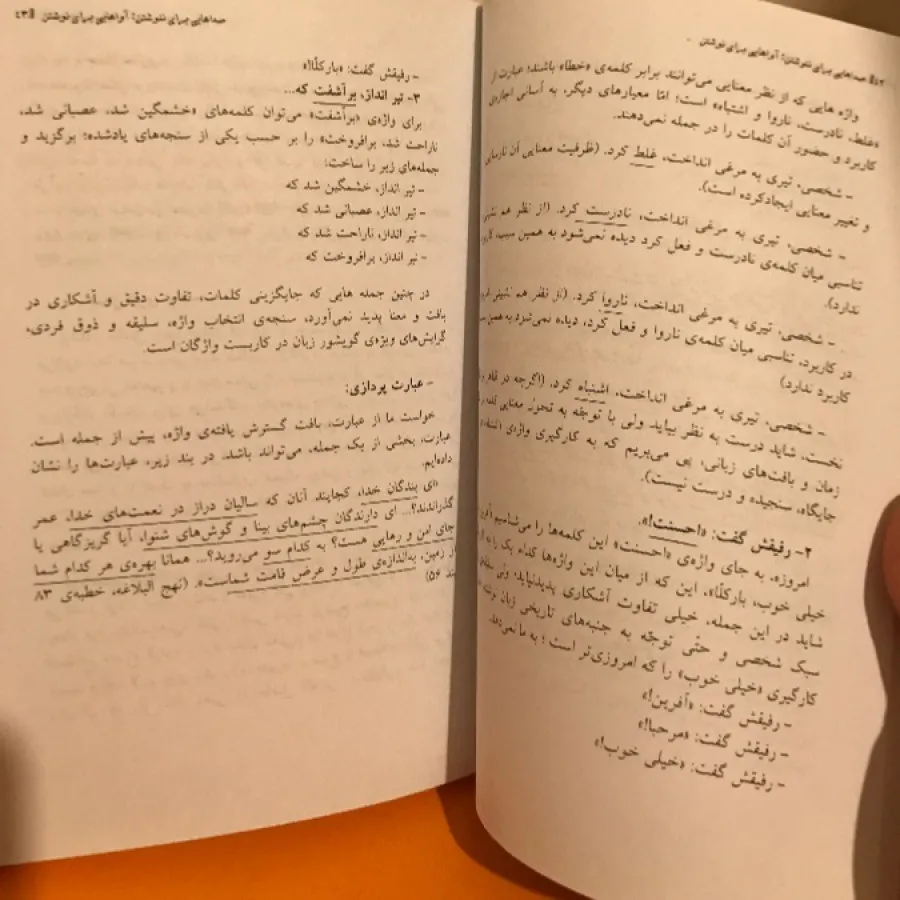 ۴۲ صداهایی برای ننوشتن؛ آواهایی برای نوشتن
واژه هایی که از نظر معنایی می‌توانند برابر کلمه‌ی «خطا» باشند؛ عبارت از
«غلط، نادرست، ناروا و اشتباه» است؛ امّا معیارهای دیگر، به آسانی اجازه‌ی
کاربرد و حضور آن کلمات را در جمله نمی‌دهند.
– شخصی، تیری به مرغی انداخت، غلط کرد. (ظرفیت معنایی آن نارسایی
و تغییر معنایی ایجادکرده است).
– شخصی، تیری به مرغی انداخت، نادرست کرد. (از نظر هم نشینی
تناسبی میان کلمه‌ی نادرست و فعل کرد دیده نمی‌شود به همین سبب، کاربرد
ندارد).
– شخصی، تیری به مرغی انداخت، ناروا کرد. (از نظر هم نشینی
در کاربرد، تناسبی میان کلمه‌ی ناروا و فعل کرد، دیده نمی‌شود به همین
کاربرد ندارد)
– شخصی، تیری به مرغی انداخت، اشتباه کرد. (اگرچه در
نخست، شاید درست به نظر بیاید ولی با توجّه به تحوّل معنایی
زمان و بافت‌های زبانی، پی می‌بریم که به کارگیری واژه‌ی
جایگاه، سنجیده و درست نیست).
۲- رفیقش گفت: «احسنت!».
امروزه، به جای واژه‌ی «احسنت» این کلمه‌ها را می‌شناسیم
خیلی خوب، بارکلّا». این که از میان این واژه‌ها کدام یک را
شاید در این جمله، خیلی تفاوت آشکاری پدیدنیاید؛ ولی
سبک شخصی و حتّی توجّه به جنبه‌های تاریخی زبان
کارگیری «خیلی خوب» را که امروزی‌تر است؛ به ما نمی‌دهد.
– رفیقش گفت: «آفرین!»
– رفیقش گفت: «مرحبا!»
– رفیقش گفت: «خیلی خوب!»
صداهایی برای ننوشتن؛ آواهایی برای نوشتن ۴۳
– رفیقش گفت: «بارکلّا!»
۳- تیر انداز، برآشفت که...
برای واژه‌ی «برآشفت» می‌توان کلمه‌های «خشمگین شد، عصبانی شد،
ناراحت شد، برافروخت» را بر حسب یکی از سنجه‌های یادشده؛ برگزید و
جمله‌های زیر را ساخت:
– تیر انداز، خشمگین شد که
– تیر انداز، عصبانی شد که
– تیر انداز، ناراحت شد که
– تیر انداز، برافروخت که
در چنین جمله هایی که جایگزینی کلمات، تفاوت دقیق و آشکاری در
بافت و معنا پدید نمی‌آورد، سنجه‌ی انتخاب واژه، سلیقه و ذوق فردی،
گرایش‌های ویژه‌ی گویشور زبان در کاربست واژگان است.
– عبارت پردازی:
خواست ما از عبارت، بافت گسترش یافته‌ی واژه، پیش از جمله است.
عبارت، بخشی از یک جمله، می‌تواند باشد. در بند زیر، عبارت‌ها را نشان
داده‌ایم.
«ای بندگان خدا، کجایند آنان که سالیان دراز در نعمت‌های خدا، عمر
گذراندند؟... ای دارندگان چشم‌های بینا و گوش‌های شنوا، آیا گریزگاهی یا
جای امن و رهایی هست؟ به کدام سو می‌روید؟... همانا بهره‌ی هر کدام شما
از زمین، به‌اندازه‌ی طول و عرض قامت شماست». (نهج البلاغه، خطبه‌ی ۸۳
بند ۵۶)